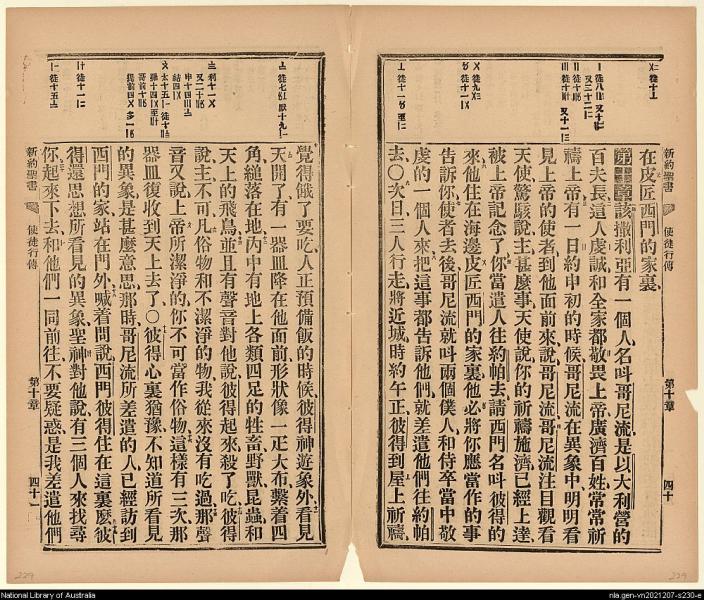 在皮匠西門的家裏
第十章該撒利亞有一個人名呌哥尼流是以大利營的
百夫長這人虔誠和全家都敬畏上帝廣濟百姓常常祈
禱上帝有一日約申初的時候哥尼流在異象中明明看
見上帝的使者到他面前來說哥尼流哥尼流注目觀看
天使驚駭說主甚麽事天使說你的祈禱施濟已經上達
被上帝記念了你當遣人往約帕去請西門名呌彼得的
來他住在海邊皮匠西門的家裏他必將你應當作的事
告訴你使者去後哥尼流就呌兩個僕人和侍卒當中敬
虔的一個人來把這事都告訴他們就差遣他們往約帕
去〇次日三人行走將近城時約午正彼得到屋上祈禱
新約聖書
使徒行傳
第十章
四十
覺得餓了要吃人正預備飯的時候彼得神遊象外看見
天開了有一器皿降在他面前形狀像一疋大布繫着四
角縋落在地內中有地上各類四足的牲畜野獸昆蟲和
天上的飛鳥並且有聲音對他說彼得起來殺了吃彼得
說主不可凡俗物和不潔淨的物我從來沒有吃過那聲
音又說上帝所潔淨的你不可當作俗物這樣有三次那
器皿復收到天上去了〇彼得心裏猶豫不知道所看見
的異象是甚麽意思那時哥尼流所差遣的人已經訪到
西門的家站在門外喊着問說西門彼得住在這裏麽彼
得還思想所看見的異象聖神對他說有三個人來找尋
你起來下去和他們一同前往不要疑惑是我差遣他們
新約聖書
使徒行傳
第十章
四十一
229
229
National Library of Australia
nla.gen-vn2021207-s230-e